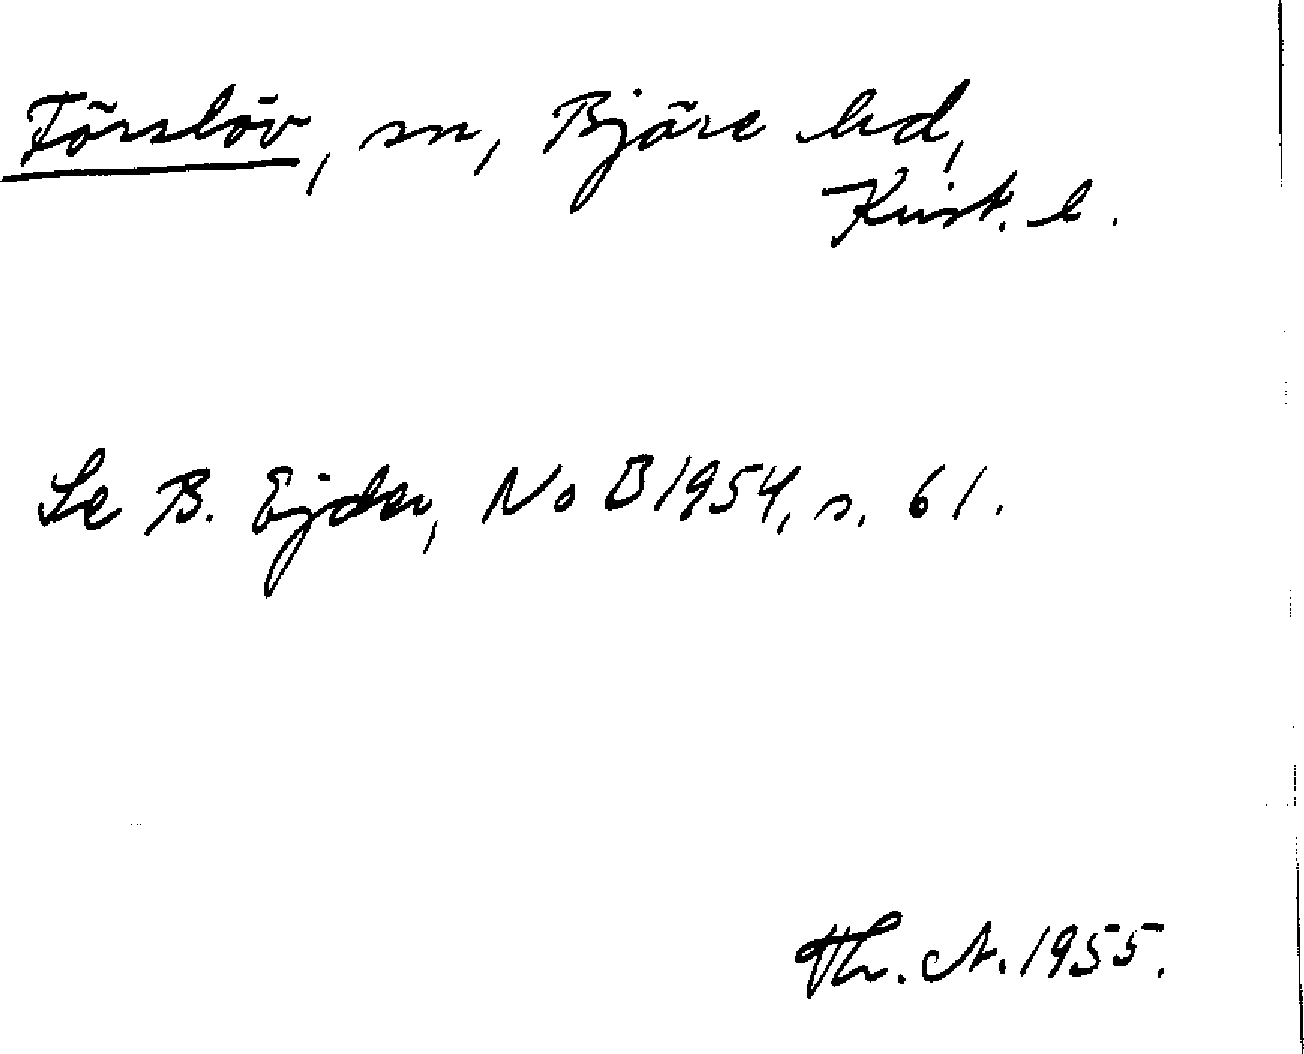 Förslöv, sn, Bjäre hd,
Krist. l.
Se B. Ejder, NoB 1954, s. 61.
Th. A. 1955.